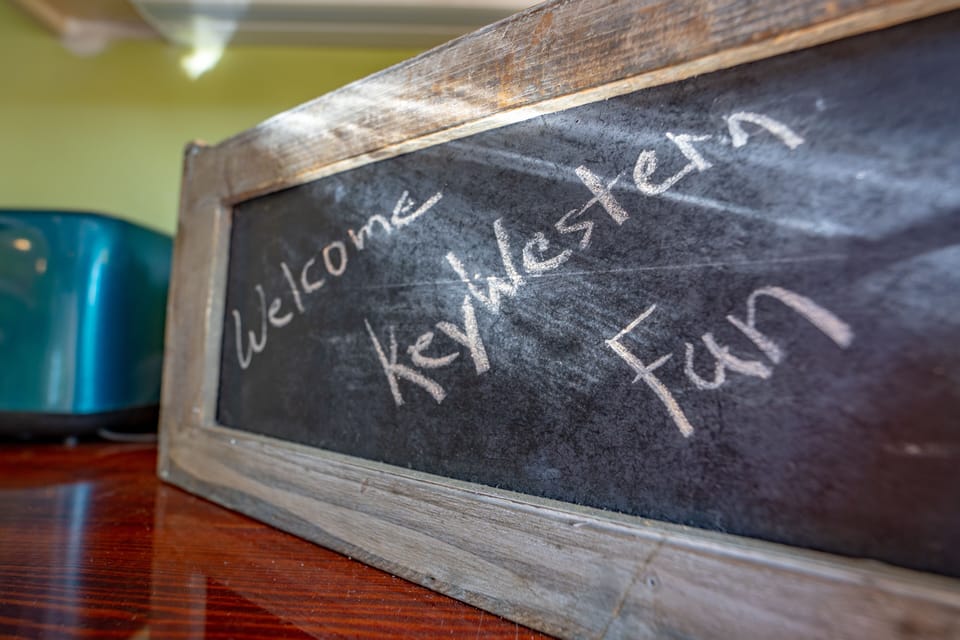 Welcome
KeyWestern
Fan